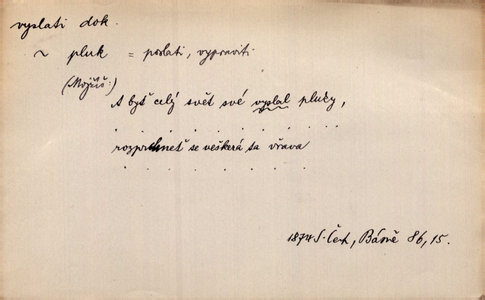 vyslati dok.
~ pluk = poslati, vypraviti
(Mojžíš:)
A byť celý svět své vyslal pluky,
. . . . . . . . . .
rozprchneť se veškerá ta vřava
. . . . . .
1874 S. Čech, Básně 86, 15.